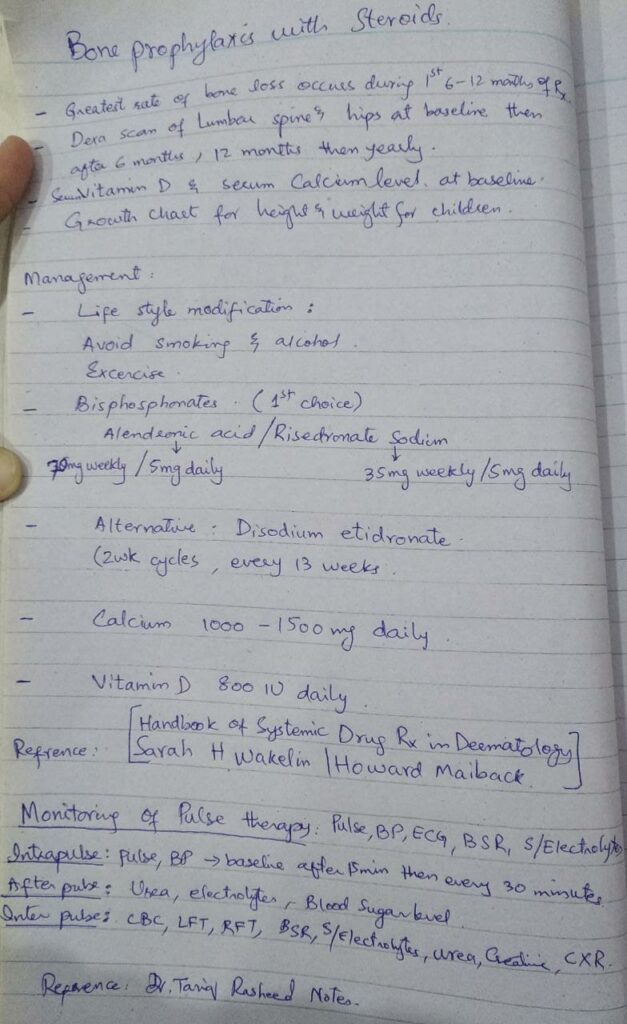 Bone prophylaxis with Steroids.
- Greatest rate of bone loss occurs during 1st 6-12 months of Rx
- Dexa scan of Lumbar spine & hips at baseline then
after 6 months, 12 months then yearly.
- Serum Vitamin D & serum Calcium level at baseline.
- Growth chart for height & weight for children.
Management:
- Life style modification:
Avoid smoking & alcohol.
Excercise.
- Bisphosphonates. (1st choice)
Alendronic acid / Risedronate Sodium
70mg weekly / 5mg daily ↓ 35mg weekly / 5mg daily ↓
- Alternative: Disodium etidronate.
(2wk cycles, every 13 weeks.
- Calcium 1000-1500 mg daily.
- Vitamin D 800 IU daily.
Refrence: [Handbook of Systemic Drug Rx in Deematology
Sarah H Wakelin | Howard Maiback.]
Monitoring of Pulse therapy: Pulse, BP, ECG, BSR, S/Electrolytes
Intrapulse: Pulse, BP → baseline after 15min then every 30 minutes.
After pulse: Urea, electrolytes, Blood Sugar level.
Inter pulse: CBC, LFT, RFT, BSR, S/Electrolytes, urea, Creatine, CXR.
Reference: Dr. Tariq Rasheed Notes.